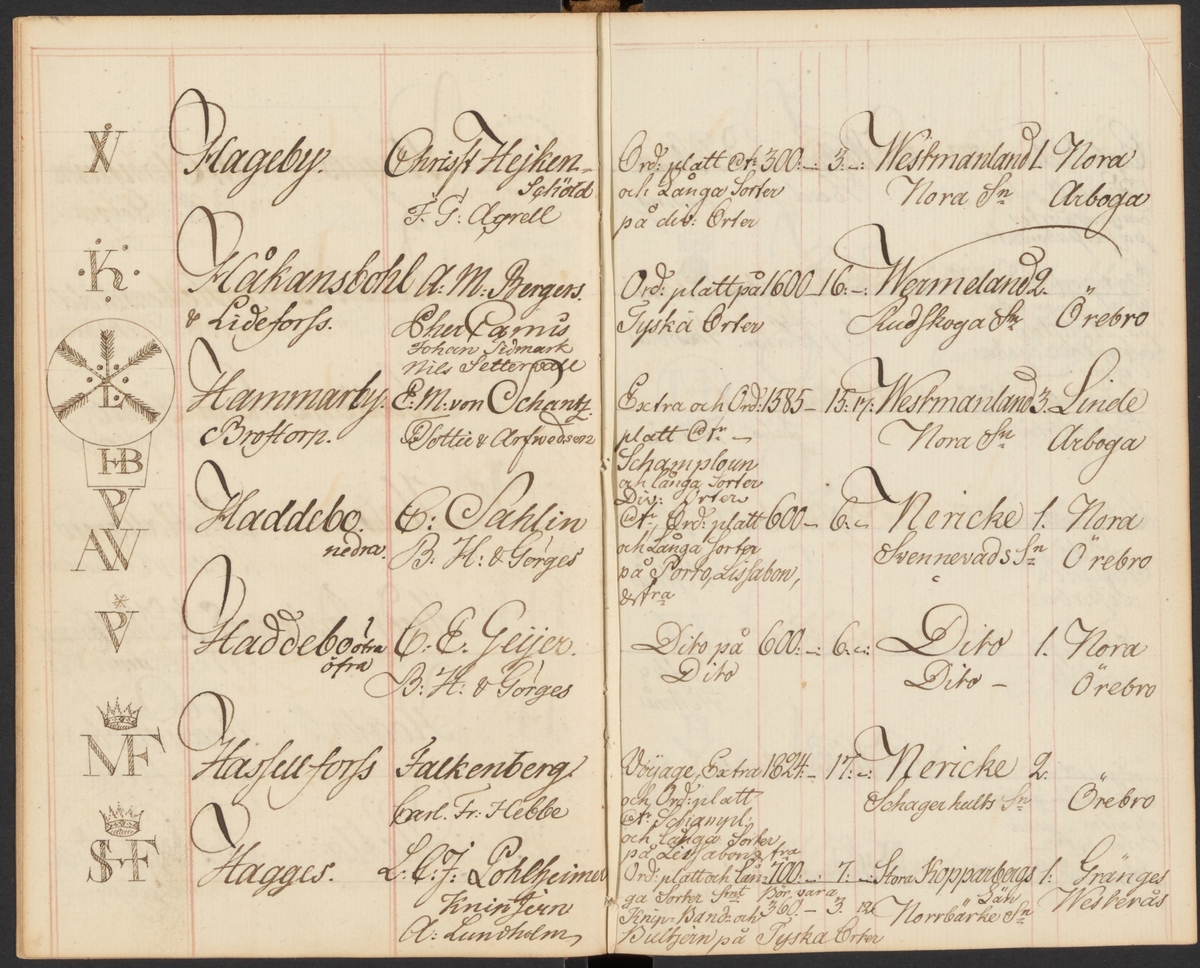 Hageby. Christ Hejken- Ord: platt 300:–: 3.–: Westmanland 1. Nora
Sköld och Långa Sorter Nora Sn Arboga
F. G: Agrell på div: Orter
K Håkansbohl A: M. Bergers. Ord: platt på 1600 – 16:–: Wermeland 2.
& Lideforss. Eher Camus Tyska Orter Rudskoga Sn Örebro
Johan Sidmark
Nils Setterwall
L Hammarby. E. M. von Schantz. Extra och Ord: 1585 – 15: 17: Westmanland 3. Linde
Brottorp. Pottie & Arfwedson platt – Nora Sn Arboga
HB Schamploun
och långa Sorter
P Div: Orter
Haddebo. C: Sahlin Ord: platt 600 – 6:–: Nericke 1. Nora
AW nedra. B. H: & Görges och Långa Sorter Svennevads Sn Örebro
på Porto, Lissabon,
P Haddebo öfra C. E. Geijer. Dito på 600:–: 6:–: Dito 1. Nora
öfra B: H: & Görges Dito Dito – Örebro
MF Hasselforss Falkenberg Voyage, Extra 1824:– 17:–: Nericke 2.
Carl. Fr: Hebbe och Ord: platt Skagerhults Sn Örebro
Schampl.
och Långa Sorter
SHF på Lissabon &
Hagges. L. C. J: Pohlheimer Ord: platt och Lån- 700:– 7:–: Stora Kopparbergs 1: Gränges
ga Sorter Bör vara Län Westerås
Knip Jern Knip- Band- och 360.– 3. Norrbärke Sn
A: Lundholm Bultjern på Tyska Orter